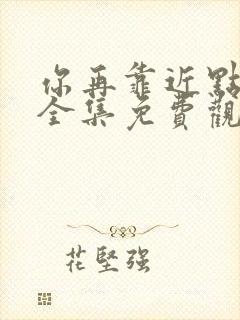 你再靠近點
全集免費觀
花堅強